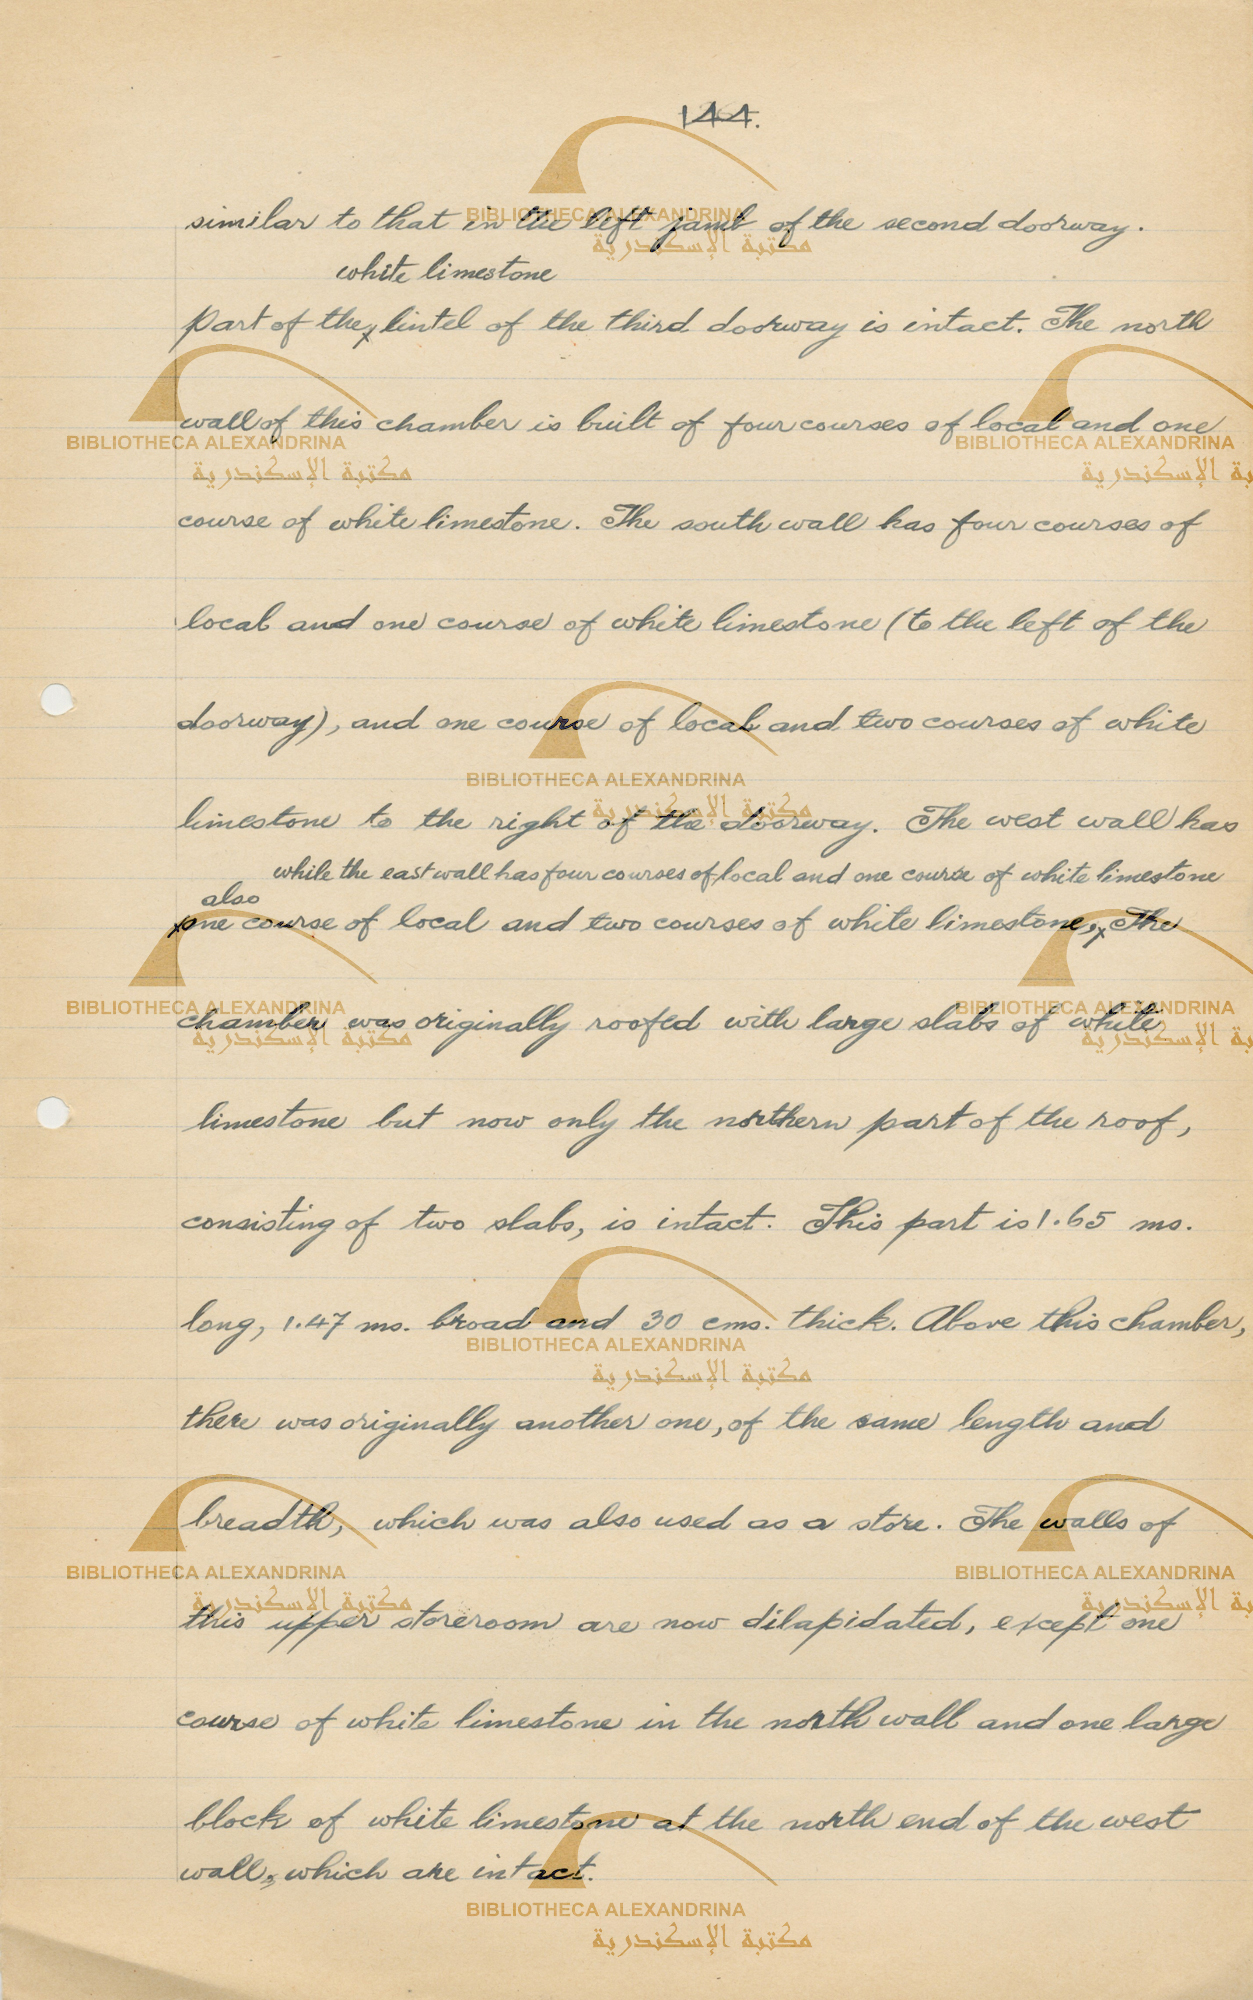 144.
similar to that in the left jamb of the second doorway.
white limestone
part of the x lintel of the third doorway is intact. The north
wall of this chamber is built of four courses of local and one
course of white limestone. The south wall has four courses of
local and one course of white limestone (to the left of the
doorway), and one course of local and two courses of white
limestone to the right of the doorway. The west wall has
while the east wall has four courses of local and one course of white limestone
also
x one course of local and two courses of white limestone, x The
chamber was originally roofed with large slabs of white
limestone but now only the northern part of the roof,
consisting of two slabs, is intact. This part is 1.65 ms.
long, 1.47 ms. broad and 30 cms. thick. Above this chamber,
there was originally another one, of the same length and
breadth, which was also used as a store. The walls of
this upper storeroom are now dilapidated, except one
course of white limestone in the north wall and one large
block of white limestone at the north end of the west
wall, which are intact.
BIBLIOTHECA ALEXANDRINA
مكتبة الإسكندرية
BIBLIOTHECA ALEXANDRINA
مكتبة الإسكندرية
BIBLIOTHECA ALEXANDRINA
مكتبة الإسكندرية
BIBLIOTHECA ALEXANDRINA
مكتبة الإسكندرية
BIBLIOTHECA ALEXANDRINA
مكتبة الإسكندرية
BIBLIOTHECA ALEXANDRINA
مكتبة الإسكندرية
BIBLIOTHECA ALEXANDRINA
مكتبة الإسكندرية
BIBLIOTHECA ALEXANDRINA
مكتبة الإسكندرية
BIBLIOTHECA ALEXANDRINA
مكتبة الإسكندرية
BIBLIOTHECA ALEXANDRINA
مكتبة الإسكندرية